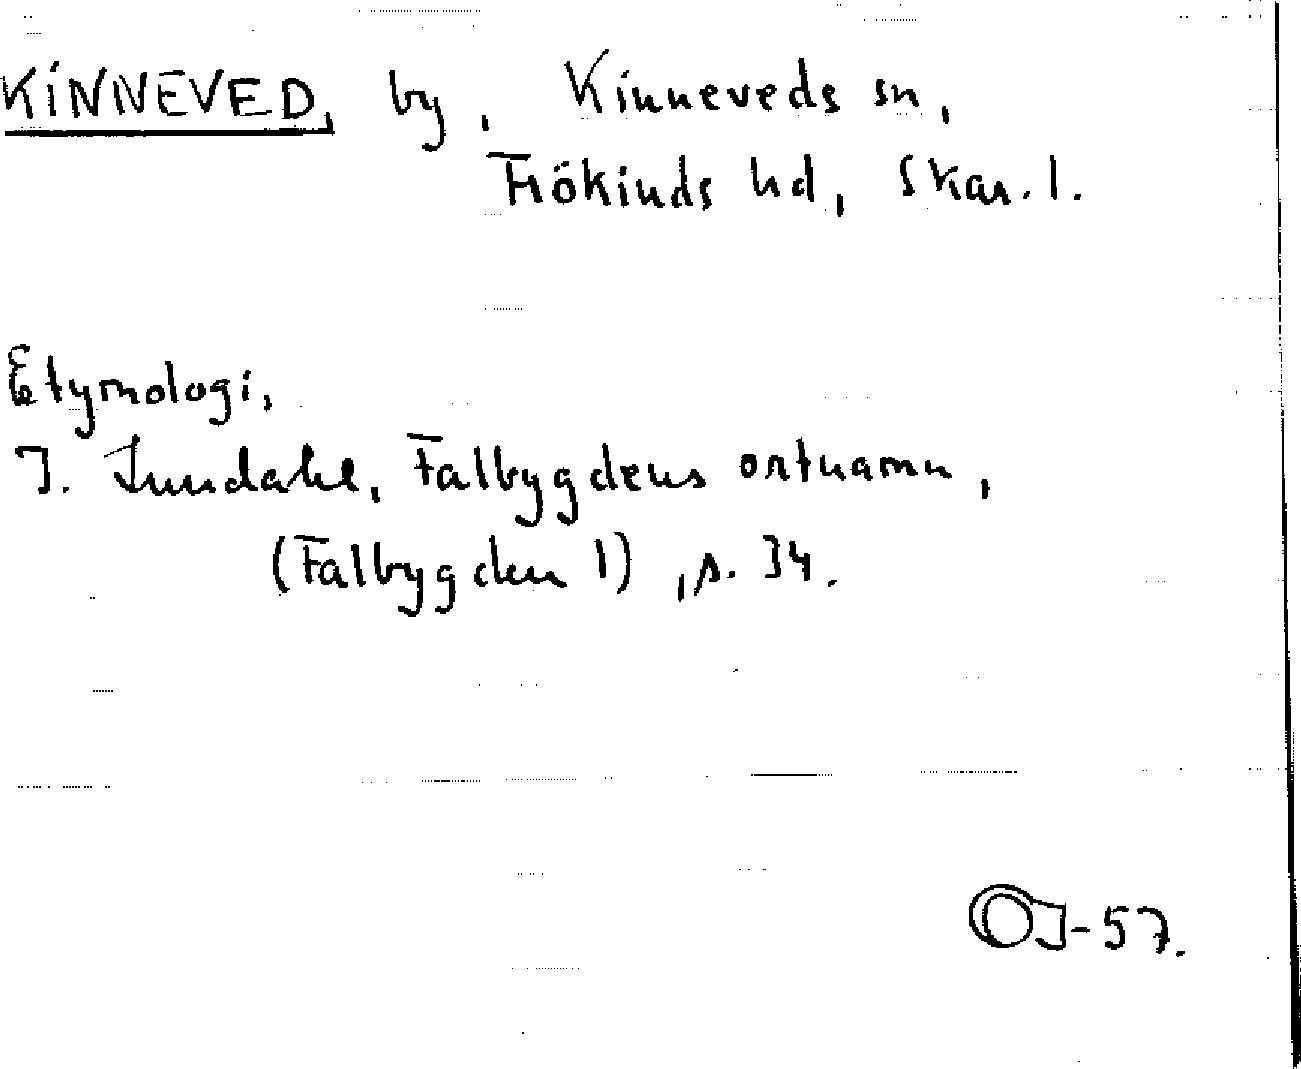 KINNEVED, by, Kinneveds sn,
Frökinds hd, Skar. l.
Etymologi,
I. Lundahl, Falbygdens ortnamn,
(Falbygden 1), s. 34.
-57.